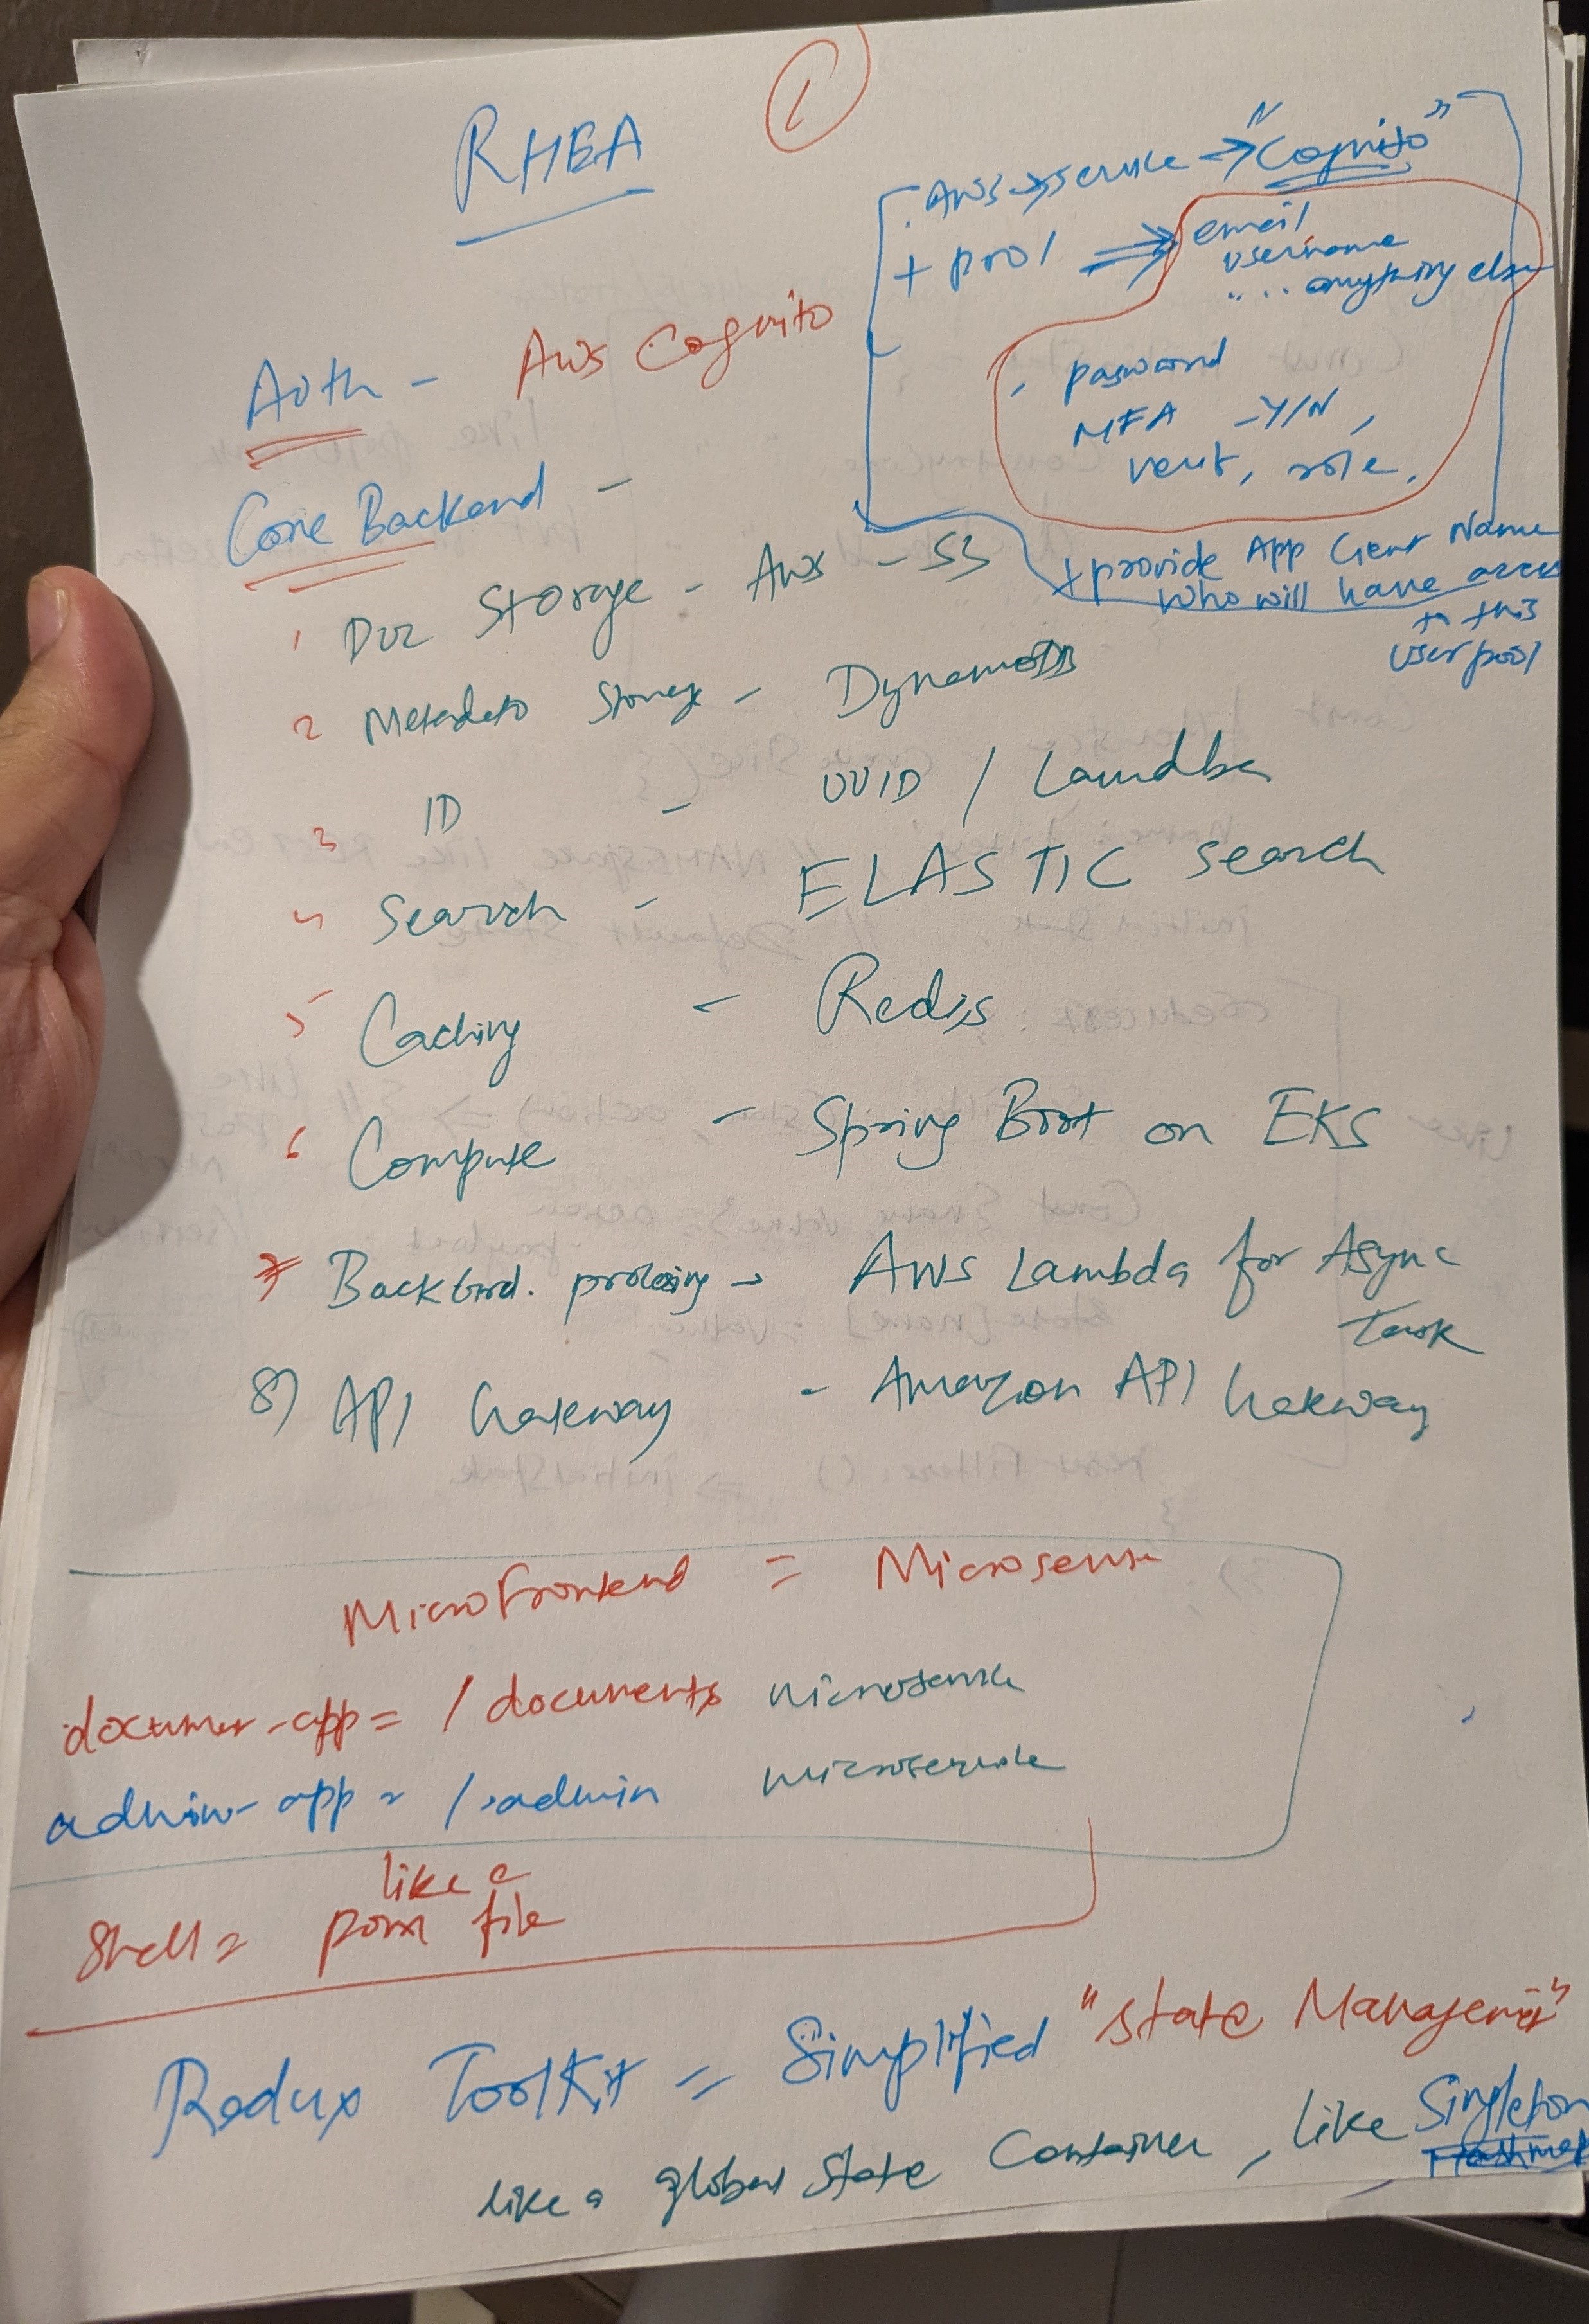 RHEA
1
AWS → service → "Cognito"
+ pool ⇒ email
username
".... anything else
, password
MFA - Y/N,
role,
+ provide App Client Name
who will have access
to this
user pool
Auth - AWS Cognito
Core Backend -
1 Doc Storage - AWS - S3
2 Metadata Storage - DynamoDB
3 ID - UUID / Lamdba
4 Search - ELASTIC search
5 Caching - Redis
6 Compute - Spring Boot on EKS
7 Backgrd. processing - AWS Lambda for Async
Task
8) API Gateway - Amazon API Gateway
MicroFrontend = Microservice
document-app = /documents microservice
admin-app = /admin microservice
like a
Shell = pom file
Redux ToolKit = Simplified "State Management"
like a global state Container, like Singleton